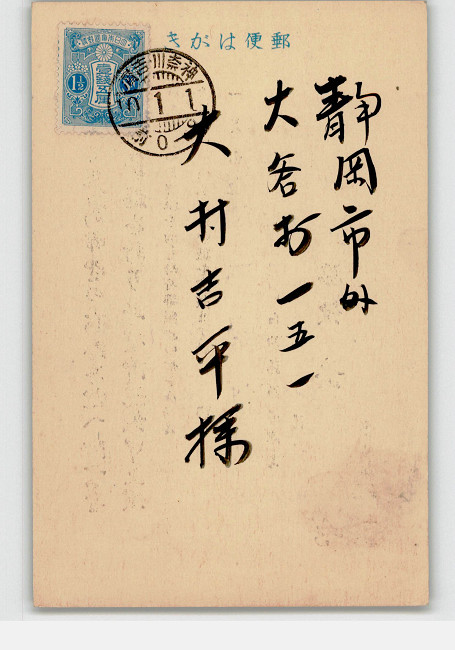 きがは便郵
静岡市外
大谷村一五一
大村吉平様
大日本帝国郵便
壹錢五厘
1½
神奈川
1.1